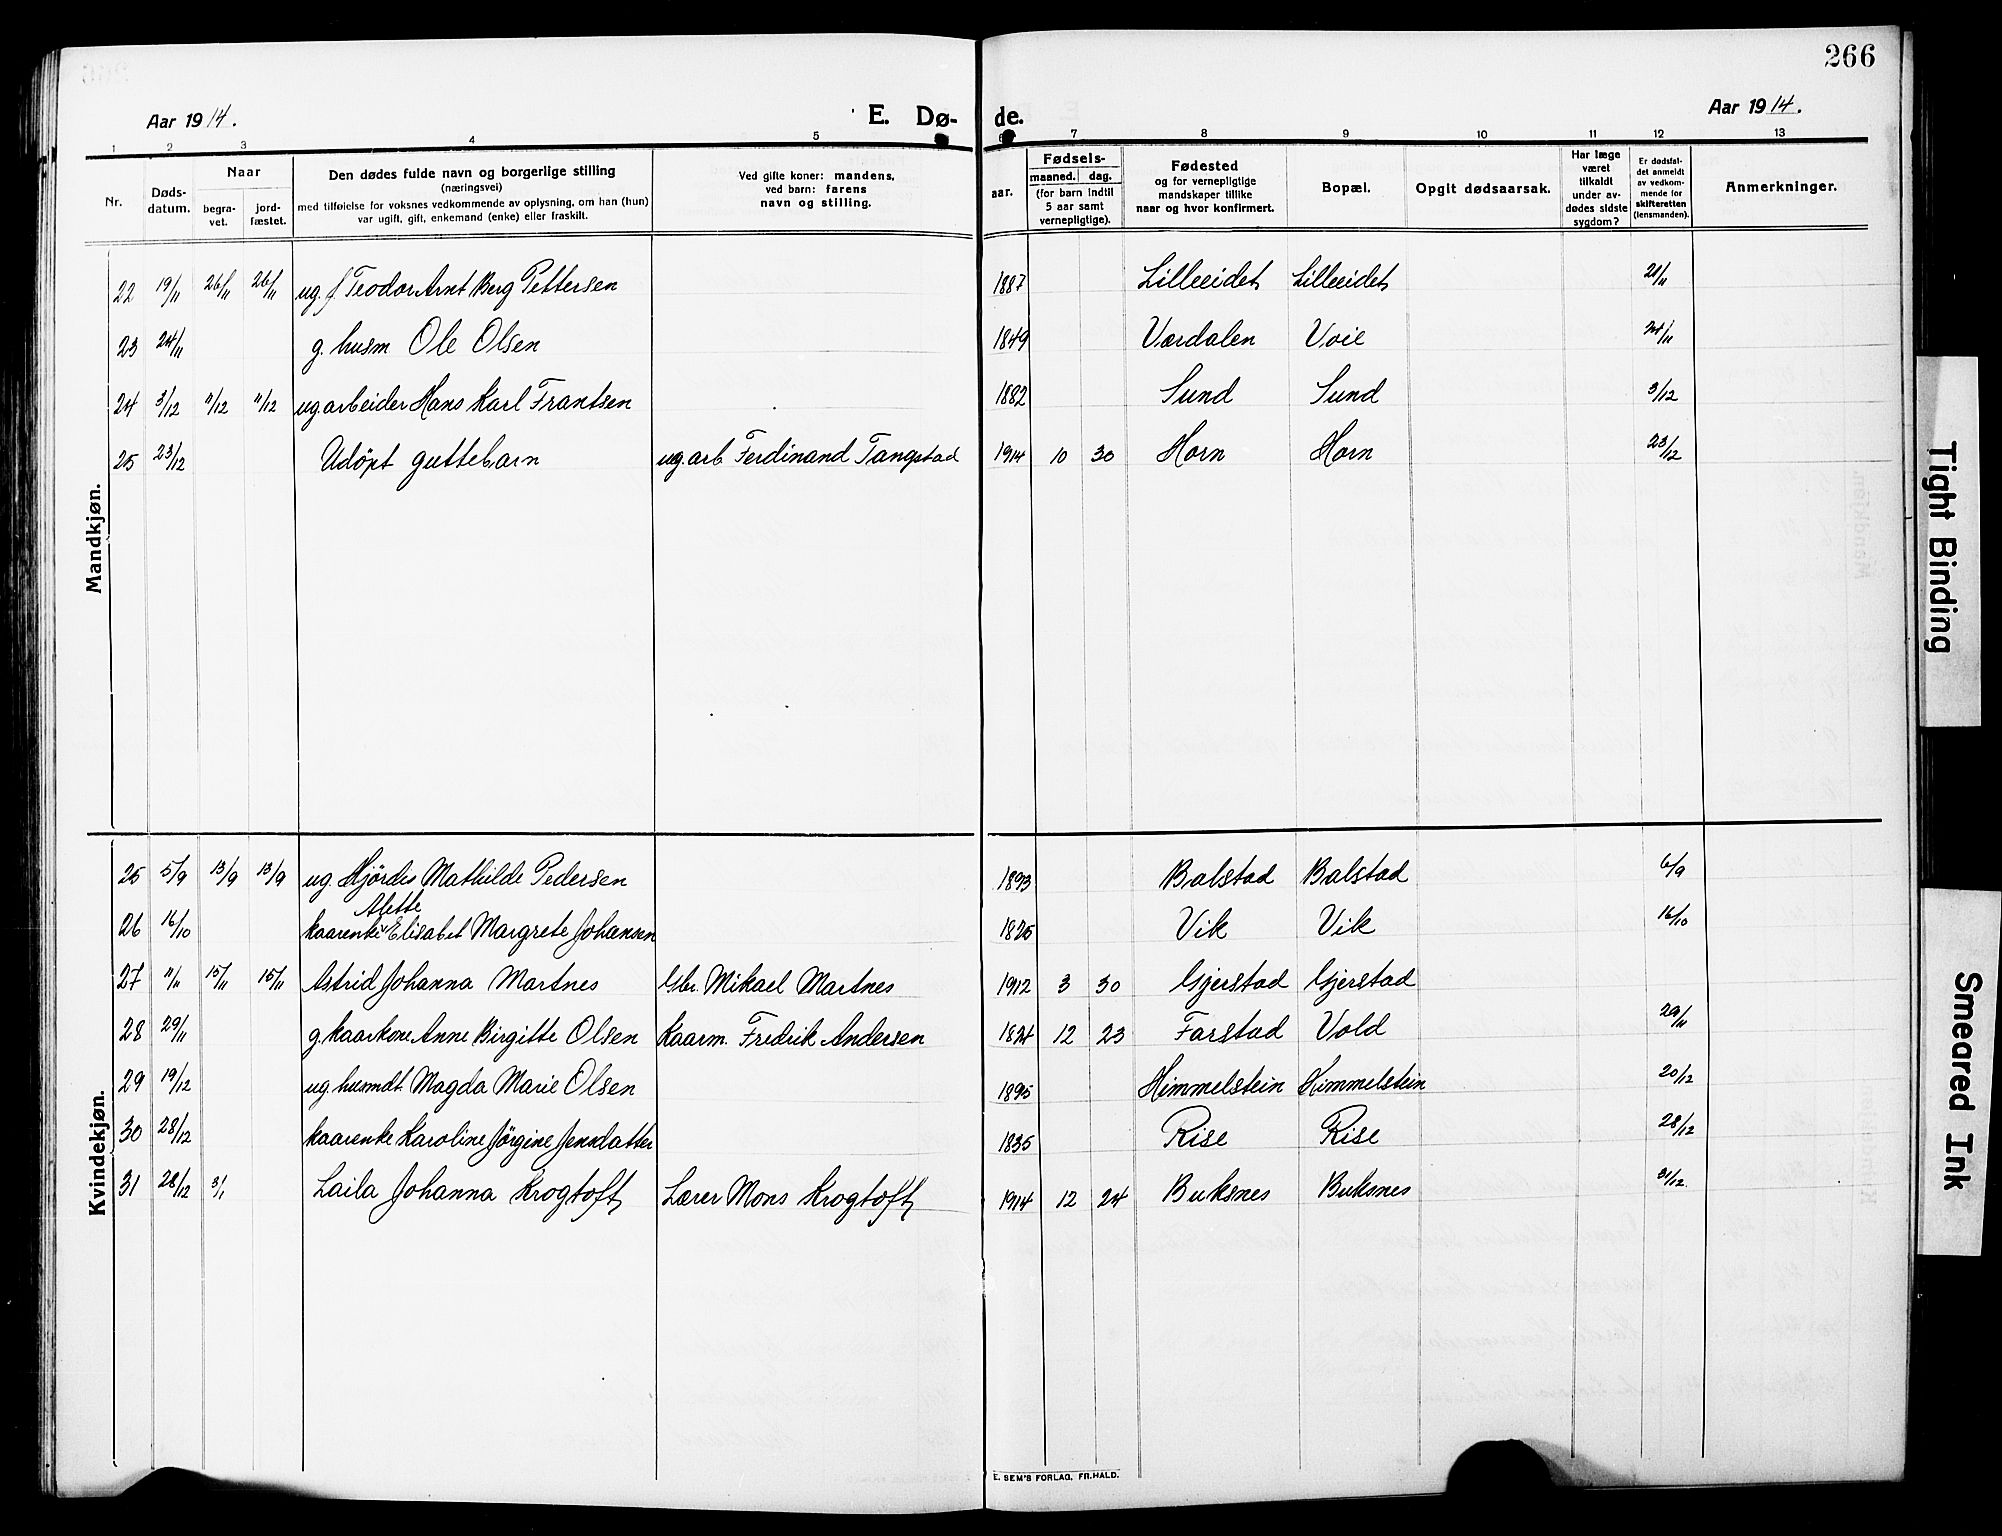 266
Aar 1914. E. Dø- de. Aar 1914.
1 2 3 4 5 6 7 8 9 10 11 12 13
Nr.
Døds-
datum.
Naar
begra-
vet.
jord-
fæstet.
Den dødes fulde navn og borgerlige stilling
(næringsvei)
med tilføielse for voksnes vedkommende av oplysning, om han (hun)
var ugift, gift, enkemand (enke) eller fraskilt.
Ved gifte koner: mandens,
ved barn: farens
navn og stilling.
aar.
Fødsels-
maaned. dag.
(for barn indtil
5 aar samt
vernepligtige).
Fødested
og for vernepligtige
mandskaper tillike
naar og hvor konfirmert.
Bopæl.
Opgit dødsaarsak.
Har læge
været
tilkaldt
under av-
dødes sidste
sygdom?
Er dødsfal-
det anmeldt
av vedkom-
mende for
skifteretten
(lensmanden).
Anmerkninger.
Mandkjøn.
22 19/11 26/11 26/11 ug. f Teodor Arnt Berg Pettersen 1887 Lilleeidet Lilleeidet 21/11
23 24/11 g. husm Ole Olsen 1849 Værdalen Voie 24/11
24 3/12 11/12 11/12 ug arbeider Hans Karl Frantsen 1882 Sund Sund 3/12
25 23/12 Udøpt guttebarn ug. arb Ferdinand Tangstad 1914 10 30 Horn Horn 23/12
Kvindekjøn.
25 5/9 13/9 13/9 ug. Hjördis Mathilde Pedersen 1893 Balstad Balstad 6/9
Alette
26 16/10 kaarenke Elisabet Margrete Johansen 1825 Vik Vik 16/10
27 11/11 15/11 15/11 Astrid Johanna Martnes Gbr. Mikael Martnes 1912 3 30 Gjerstad Gjerstad
28 29/11 g. kaarkone Anne Birgitte Olsen Kaarm. Fredrik Andersen 1824 12 23 Farstad Vold 29/11
29 19/12 ug. husmdt Magda Marie Olsen 1895 Himmelstein Himmelstein 20/12
30 28/12 kaarenke Karoline Jørgine Jensdatter 1835 Rise Rise 28/12
31 28/12 3/1 Laila Johanna Krogtoft Lærer Mons Krogtoft 1914 12 24 Buksnes Buksnes 31/12.
E. SEM'S FORLAG, FR.HALD.
Tight Binding
Smeared Ink